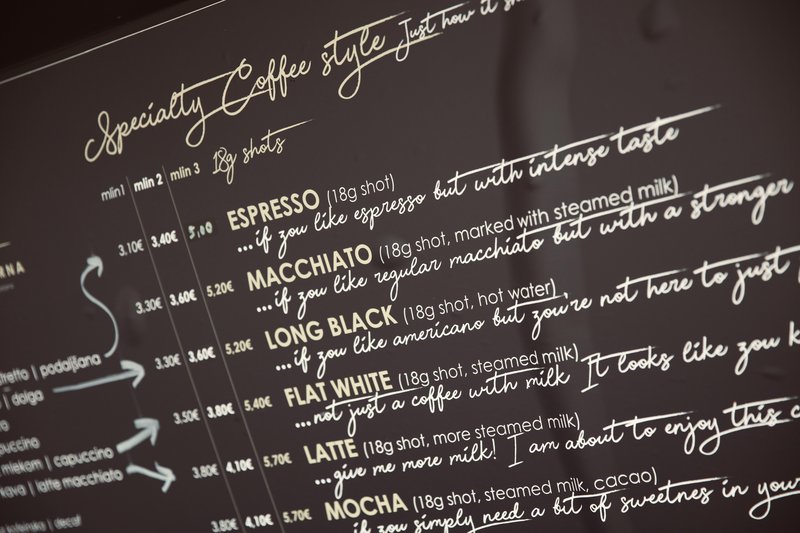 Specialty Coffee style Just how it
mlin1 mlin 2 mlin 3 18g shots
3.10€ 3,40€ ESPRESSO (18g shot)
...if you like espresso but with intense taste
3,30€ 3,60€ 5,20€ MACCHIATO (18g shot, marked with steamed milk)
...if you like regular macchiato but with a stronger
3.30€ 3.60€ 5,20€ LONG BLACK (18g shot, hot water)
...if you like americano but you're not here to just
3.50€ 3.80€ 5,40€ FLAT WHITE (18g shot, steamed milk)
...not just a coffee with milk It looks like you
3.80€ 4,10€ 5,70€ LATTE (18g shot, more steamed milk)
...give me more milk! I am about to enjoy this
3.80€ 4,10€ 5,70€ MOCHA (18g shot, steamed milk, cacao)
if you simply need a bit of sweetnes in your
| podaljšana
| dolga
mlekom | capuccino
kava | latte macchiato